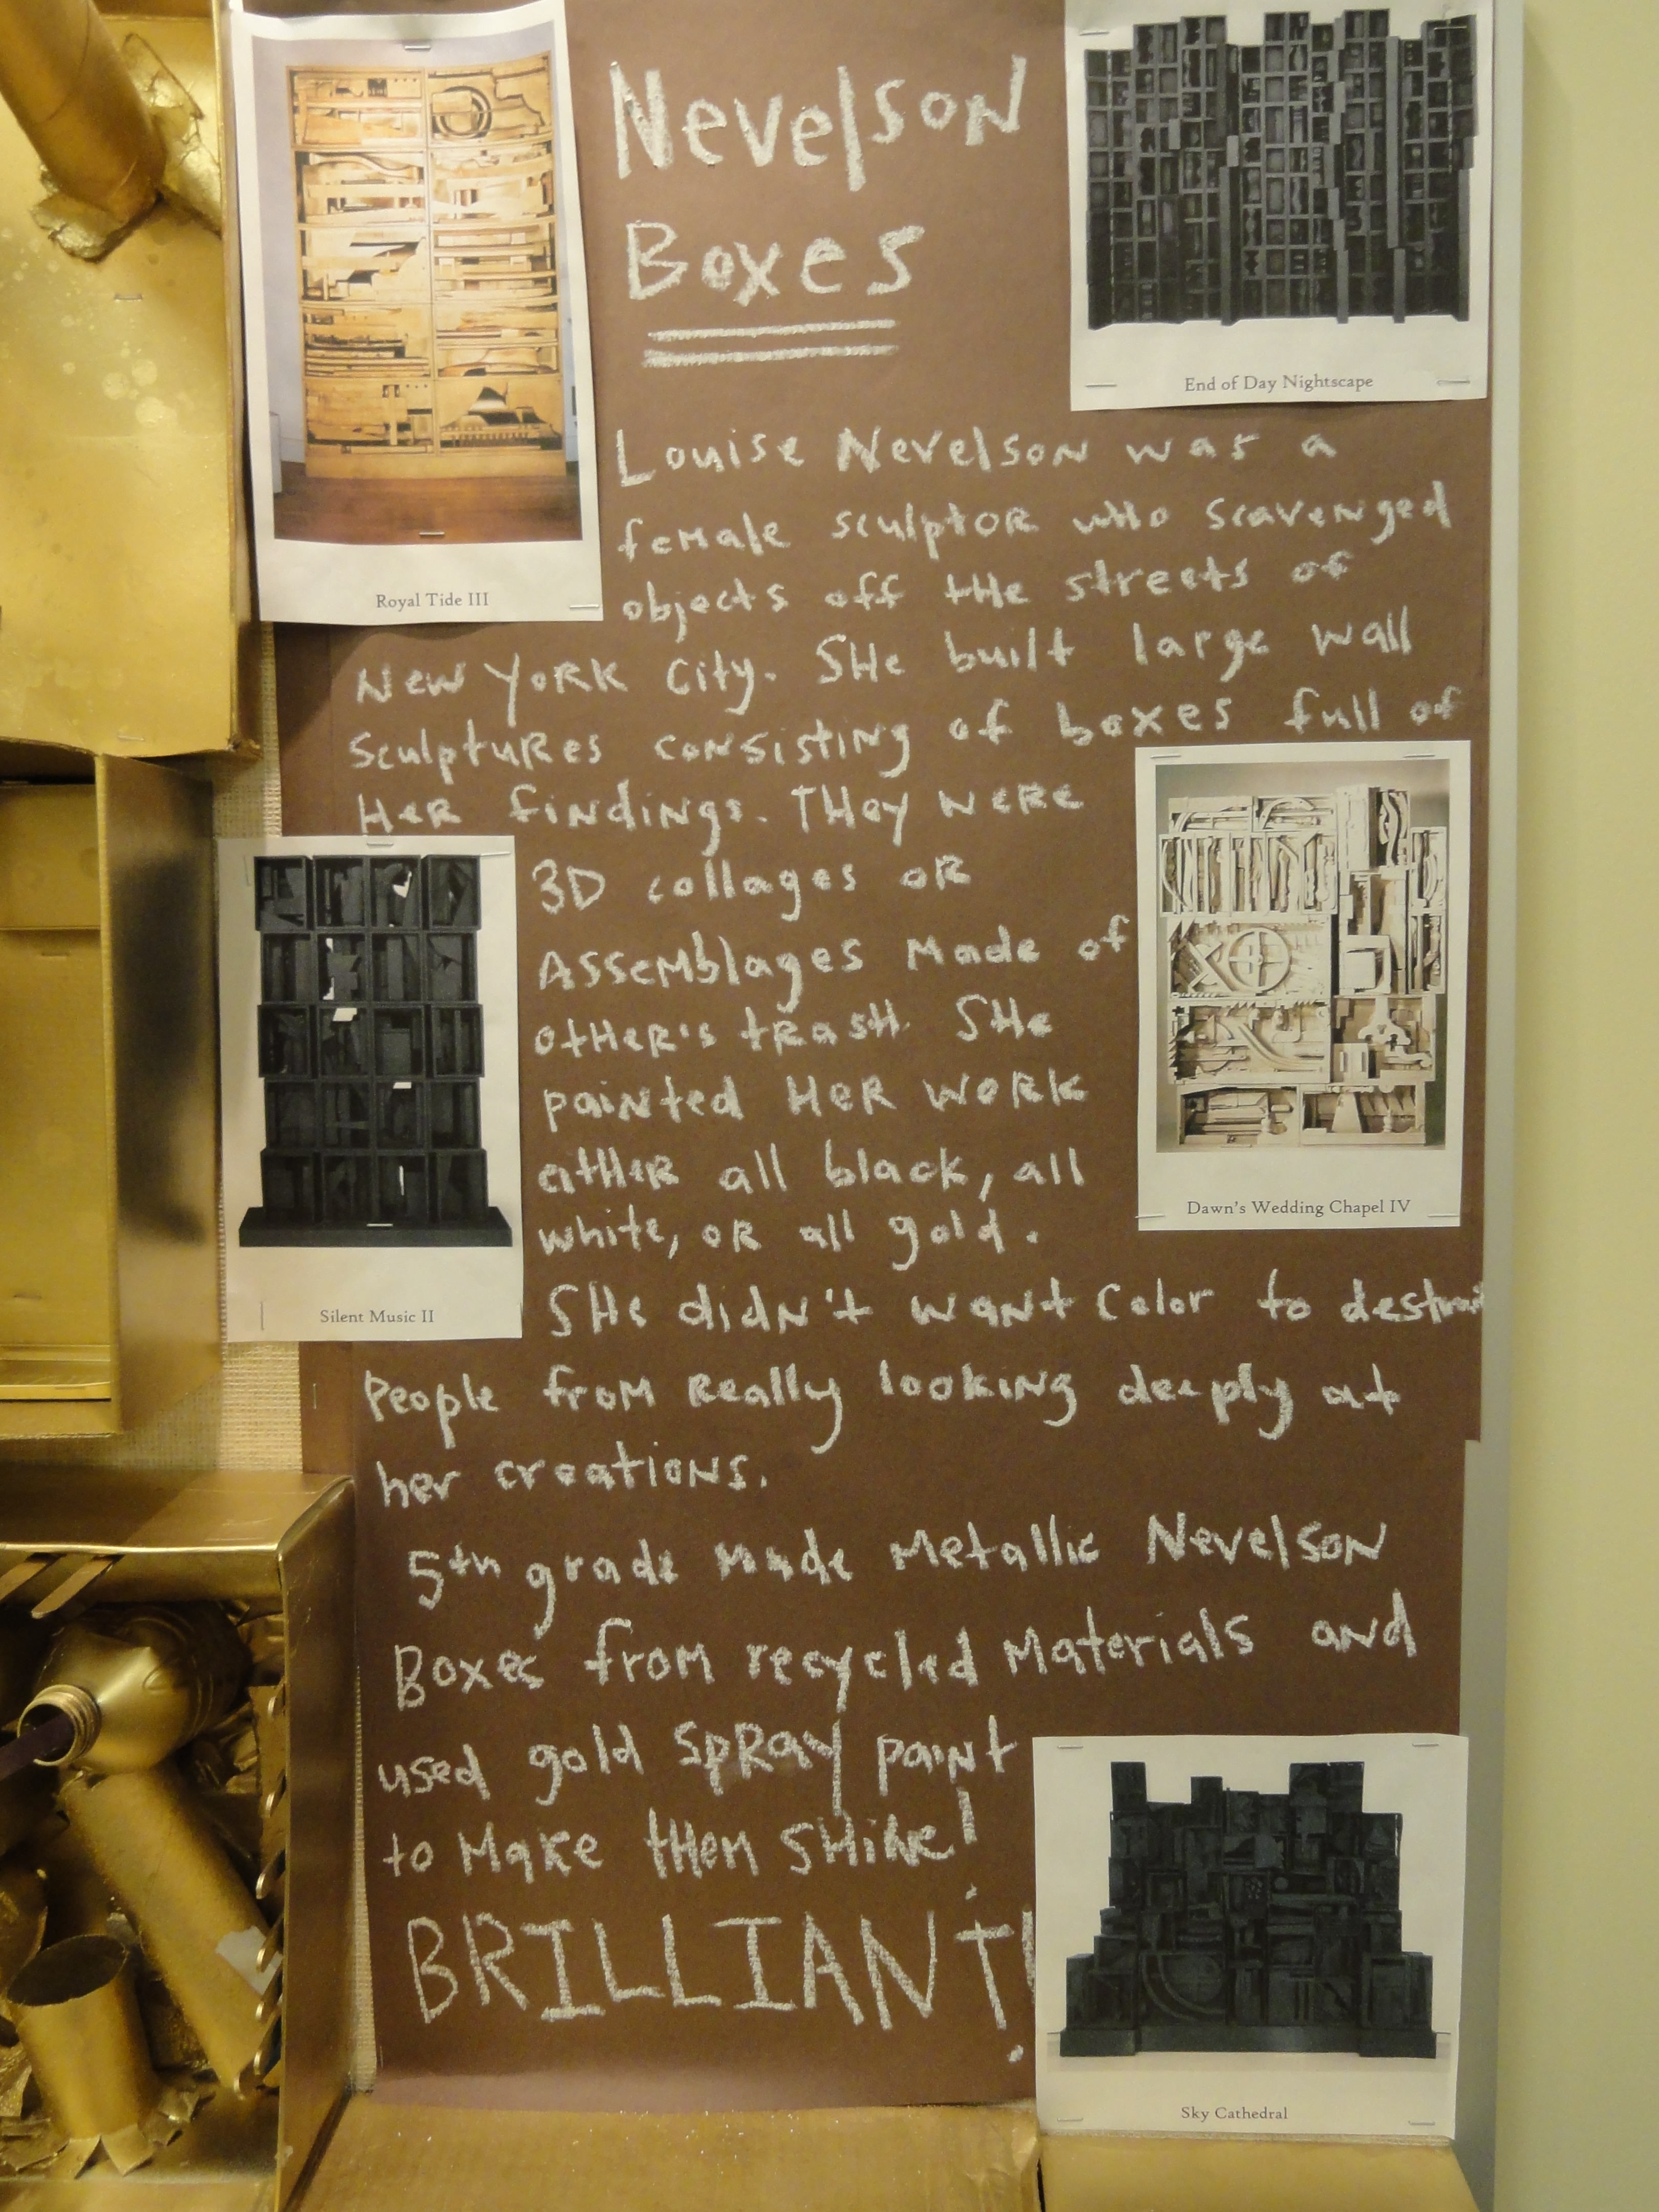 Nevelson
Boxes
End of Day Nightscape
Royal Tide III
Louise Nevelson was a
female sculptor who scavenged
objects off the streets of
New York City. She built large wall
sculptures consisting of boxes full of
Her findings. They were
3D collages or
Assemblages made of
other's trash. She
painted Her work
either all black, all
white, or all gold.
Dawn's Wedding Chapel IV
Silent Music II
She didn't want color to
People from Really looking deeply at
her creations.
5th grade made Metallic Nevelson
Boxes from recycled Materials and
used gold spray paint
to Make them SHine!
BRILLIANT!
Sky Cathedral